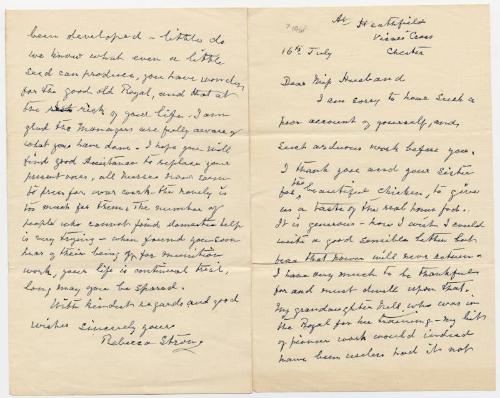 At Heathfield
Vicars Cross
16th July Chester
Dear Miss Husband
I am sorry to have such a
poor account of yourself, and
such arduous work before you.
I thank you and your sister
for the beautiful Chicken, to give
us a taste of the real home fed.
It is generous - how I wish I could
write a good sensible letter but
fear that power will never return.
I have very much to be thankful
for and must dwell upon that.
My granddaughter Nell, who was in
the Royal for her training - my bit
of pioneer work would indeed
have been useless had it not
been developed - little do
we know what even a little
seed can produce, you have won
for the good old Royal, and that at
the risk of your life. I am
glad the Managers are fully aware of
what you have done. I hope you will
find good assistance to replace your
present ones, all Nurses now seem
to press for war work the novelty is
too much for them. The number of
people who cannot find domestic help
is very trying - when found you soon
hear of their being off for munition
work, your life is continual trial,
long may you be spared.
With kindest regards and good
wishes Sincerely yours
Rebecca Strong